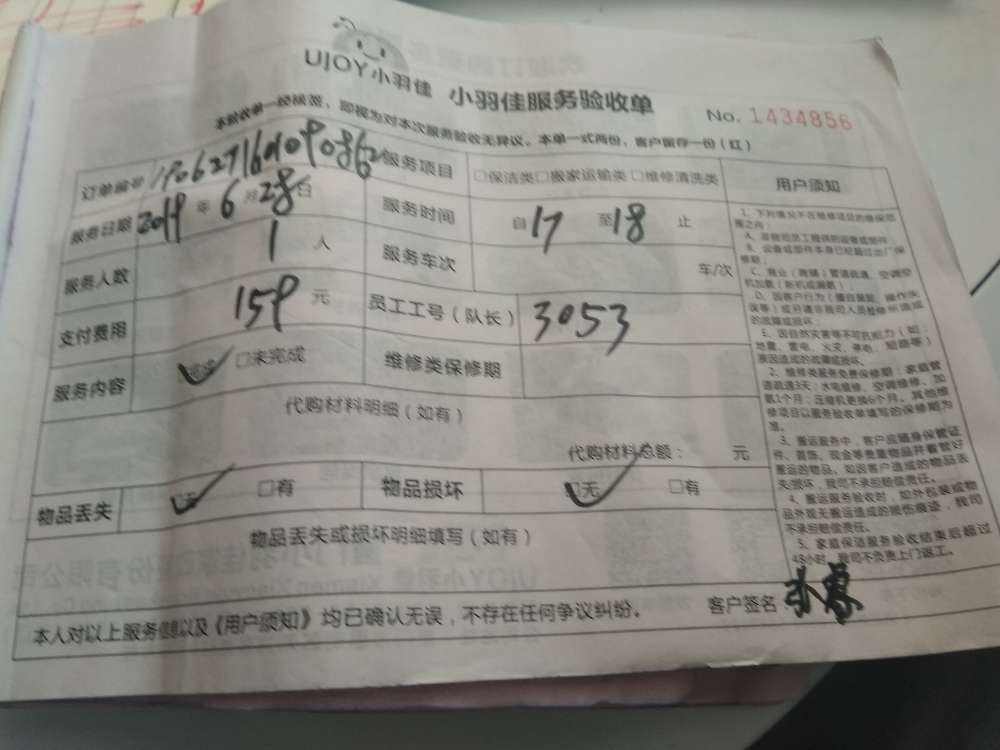 UJOY小羽佳 小羽佳服务验收单 No. 1434856
本验收单一经核签，即视为对本次服务验收无异议。本单一式两份，客户留存一份（红）
订单编号 服务项目 □保洁类□搬家运输类□维修清洗类 用户须知
服务日期 2019 年 6 月 28 日 服务时间 自 17 至 18 止
服务人数 1 人 服务车次 车/次
支付费用 159 元 员工工号（队长） 3053
服务内容 □未完成 维修类保修期
代购材料明细（如有）
代购材料总额： 元
物品丢失 □有 物品损坏 □无 □有
物品丢失或损坏明细填写（如有）
本人对以上服务信息以及《用户须知》均已确认无误，不存在任何争议纠纷。 客户签名
1、下列情况不在维修项目的维保范围之内：
A、非我司员工提供的设备或部件
B、设备或部件本身已经超过出厂保修期；
C、商业（商铺）管道疏通，空调空机加氨（新机或漏氨）
D、因客户行为（擅自属装，操作失误等）或另请非我司人员维修所造成的故障或损坏；
E、因自然灾害等不可抗拒力（如：地震，雷电，火灾，停电，短路等）原因造成的故障或损坏。
2、维修类服务免费保修期：家庭管道疏通3天；水电维修、空调维修、加氨1个月；压缩机更换6个月。其他维修项目以服务验收单填写的保修期为准。
3、搬运服务中，客户应随身保管证件、首饰、现金等贵重物品并看管好搬运的物品。如因客户造成的物品丢失/损坏，我司不承担赔偿责任。
4、搬运服务验收时，如外包装或物品外观无搬运造成的损伤痕迹，我司不承担赔偿责任。
5、家庭保洁服务验收结束后超过48小时，我司不负责上门返工。